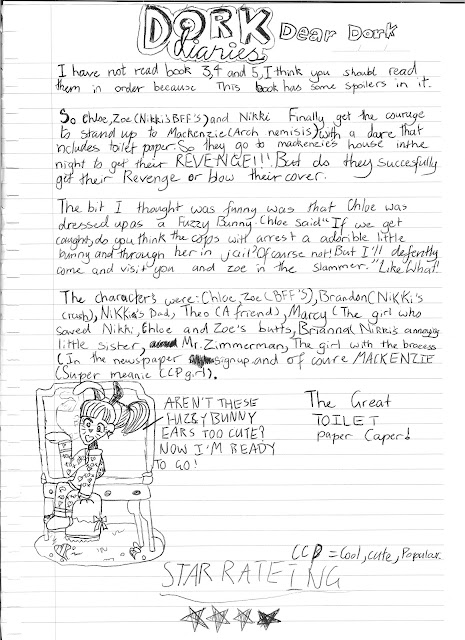 DORK
diaries
Dear Dork
I have not read book 3,4 and 5, I think you should read
them in order because This book has some spoilers in it.
So Chloe, Zoe (Nikki's BFF's) and Nikki Finally get the courage
to stand up to Mackenzie (Arch nemisis) with a dare that
includes toilet paper. So they go to mackenzies house in the
night to get their REVENGE!!! But do they succesfully
get their Revenge or blow their cover.
The bit I thought was funny was that Chloe was
dressed up as a Fuzzy Bunny. Chloe said "If we get
caught, do you think the cops will arrest a adorible little
bunny and through her in jail? Of course not! But I'll defently
come and visit you and zoe in the slammer." Like What!
The characters were: Chloe, Zoe (BFF'S), Brandon (NiKKi's
crush), NiKKi's Dad, Theo (A friend), Marcy (The girl who
saved Nikki, Chloe and Zoe's butts, Brianna, Nikki's annoying
little sister, Mr. Zimmerman, The girl with the braces
(In the newspaper signup and of coure MACKENZIE
(Super meanie CCP girl).
AREN'T THESE
FUZZY BUNNY
EARS TOO CUTE?
NOW I'M READY
TO GO!
The Great
TOILET
paper Caper!
CCP = Cool, cute, Popular
STAR RATEING